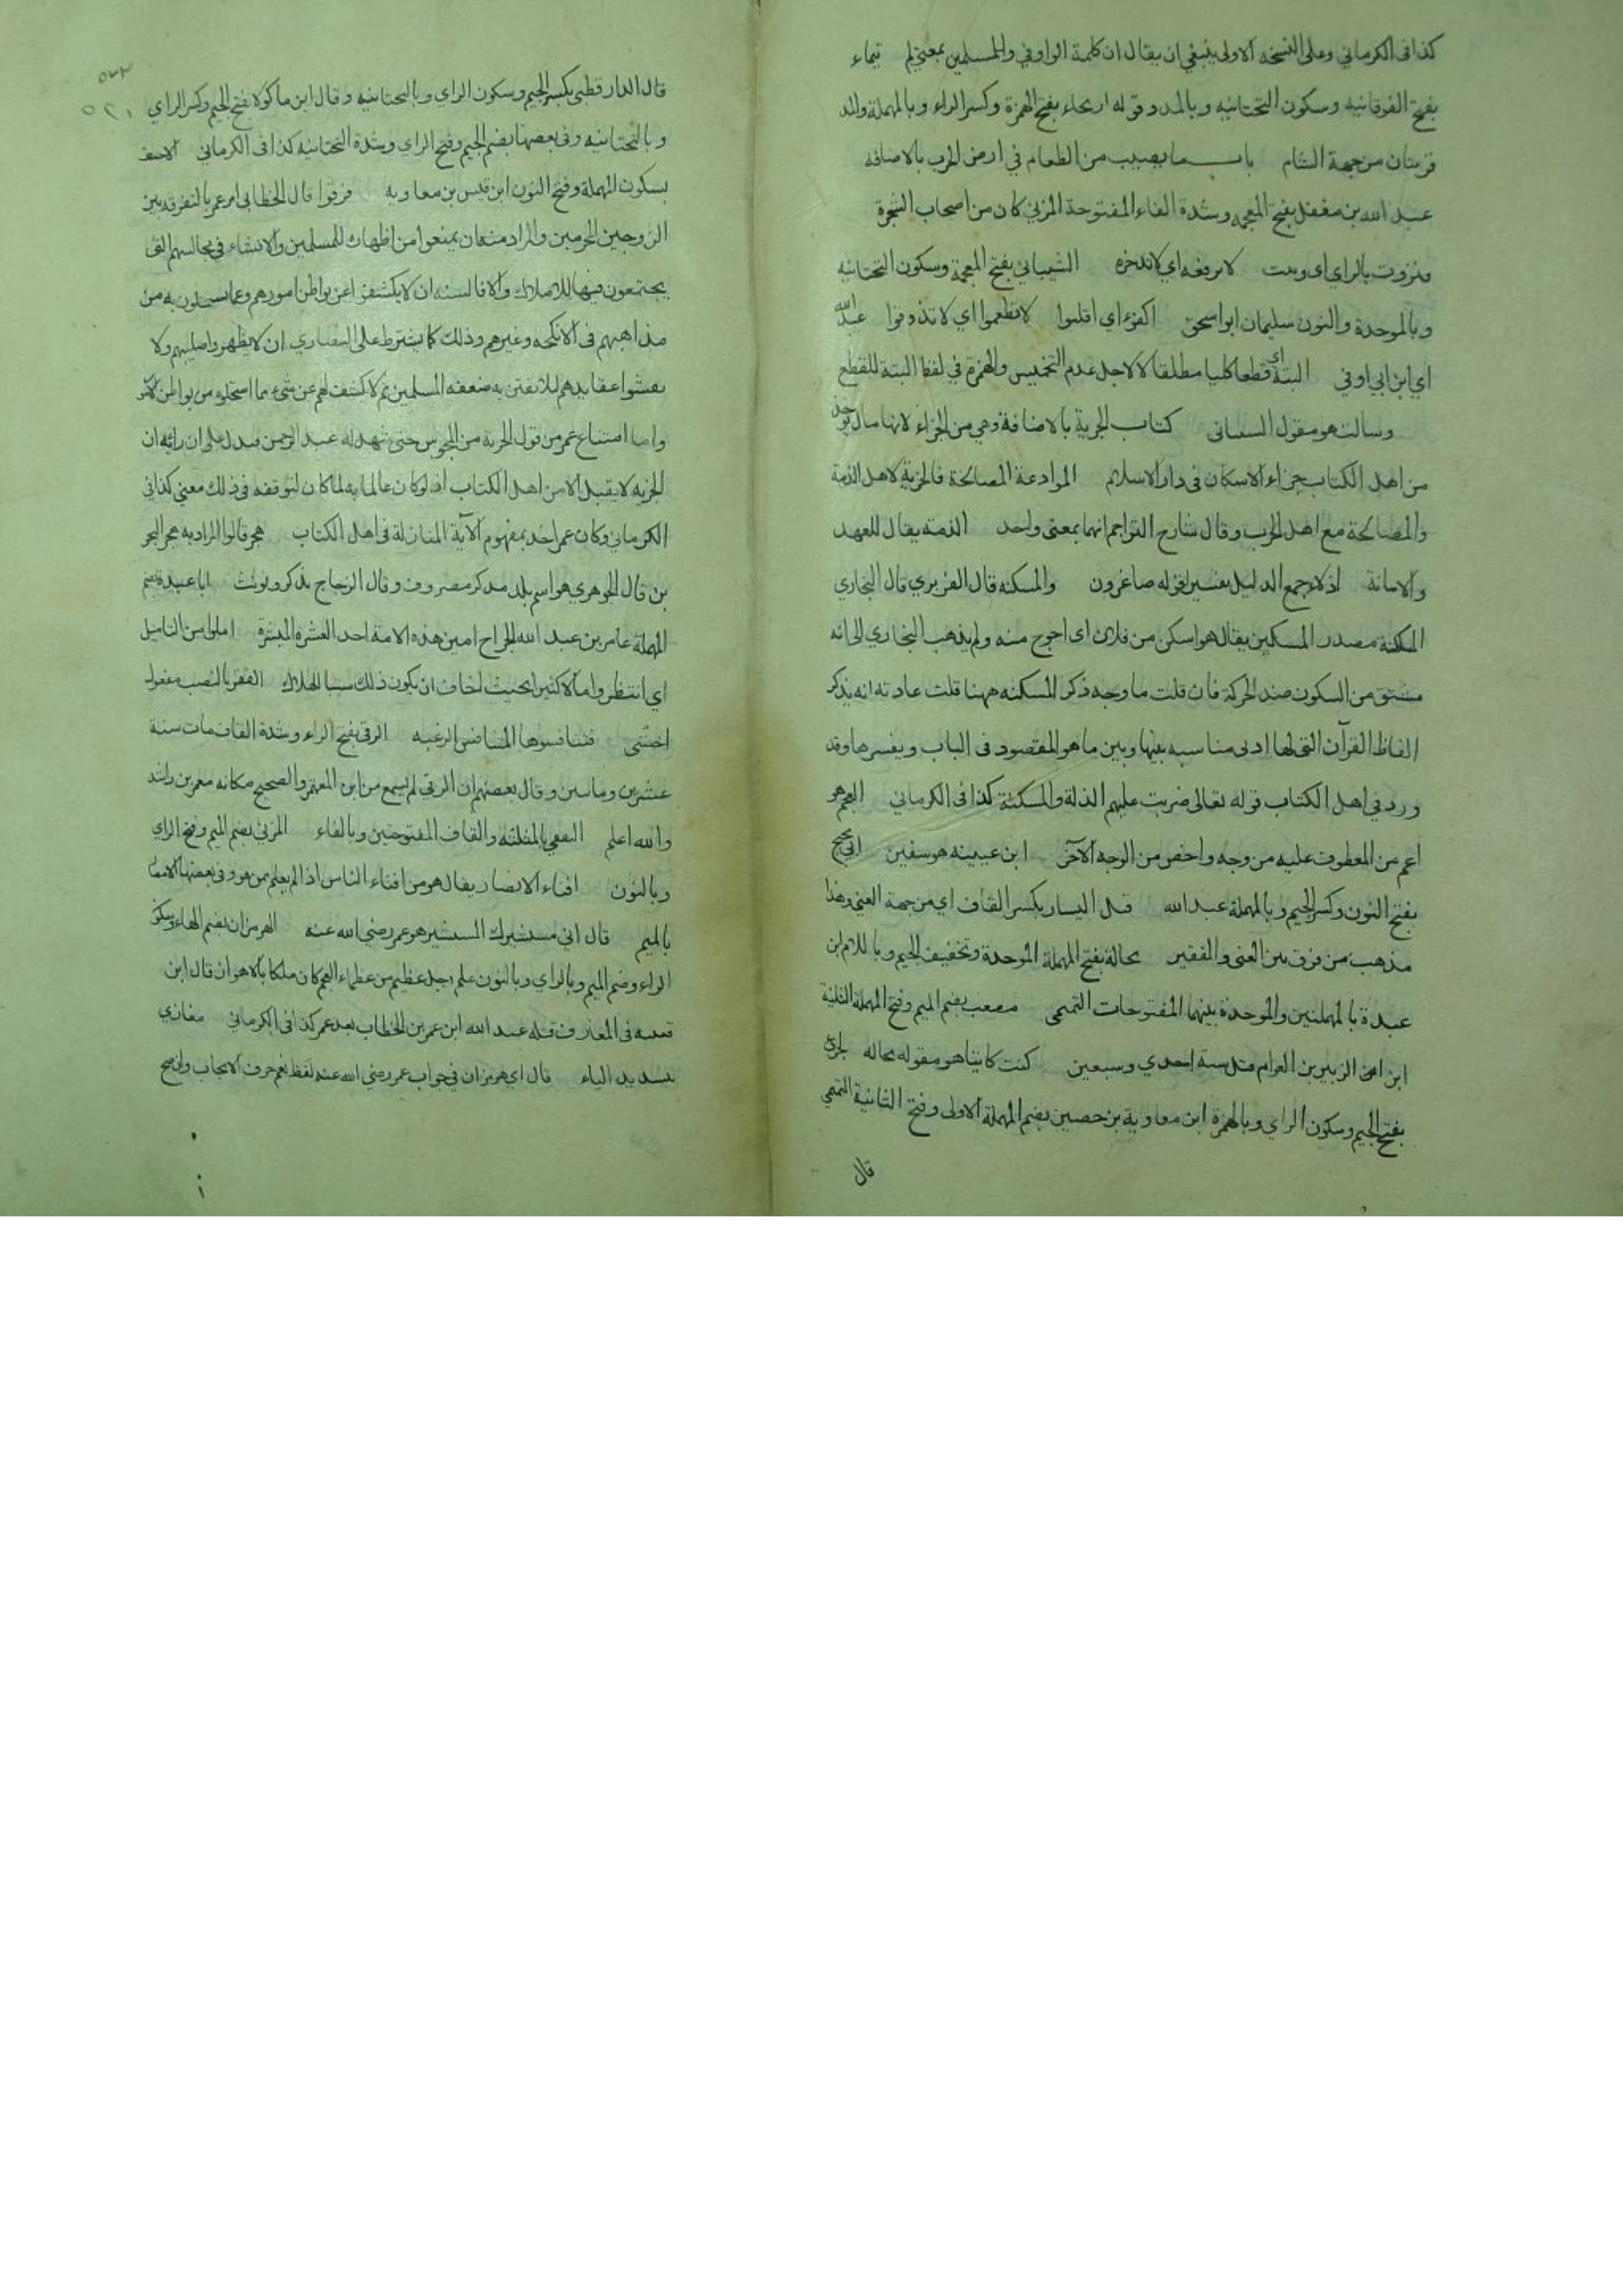 كذا فى الكرماني وعلى النسخه الاولى ينبغي ان يقال ان كلمة الواو في والمسلمين بمعنى لم تيماء
بفتح الفوقانيه وسكون التحتانيه وبالمد وقوله اريحاء بفتح الهمزة وكسر الراء وبالمهملة والمد
قريتان من جهة الشام باب ما يصيب من الطعام في ارض الحرب بالاضافه
عبد الله بن مغفل بفتح المعجمه وشدة الفاء المفتوحة المزني كان من اصحاب الشجرة
فنزوت بالزاي اى وثبت لا نرفعه اي لا ندخره الشيباني بفتح المعجمة وسكون التحتانيه
وبالموحدة والنون سليمان ابو اسحق اكفؤا اي اقلبوا لا تطعموا اي لا تذوقوا عبد الله
اي ابن ابي اوفي البتة اي قطعا كليا مطلقا لا لاجل عدم التخميس والهمزة في لفظ البتة للقطع
وسالت هو مقول الشيبانى كتاب الجزية بالاضافة وهي من الجزاء لانها مال يوخذ
من اهل الكتاب جزاء الاسكان فى دار الاسلام الموادعة المصالحة فالجزية لاهل الذمة
والمصالحة مع اهل الحرب وقال شارح التراجم انهما بمعنى واحد الذمه يقال للعهد
والامانة اذلاء جمع الذليل تفسير لقوله صاغرون والمسكنه قال الفربري قال البخاري
المسكنة مصدر المسكين يقال هو اسكن من فلان اى احوج منه ولم يذهب البخاري الى انه
مشتق من السكون ضد الحركة فان قلت ما وجه ذكر المسكنه ههنا قلت عادته انه يذكر
الفاظ القرآن التى لها ادنى مناسبه بينها وبين ما هو المقصود فى الباب ويفسرها وقد
ورد في اهل الكتاب قوله تعالى ضربت عليهم الذلة والمسكنة كذا فى الكرماني العجم هو
اعم من المعطوف عليه من وجه واخص من الوجه الآخر ابن عيينه هو سفين ابي نجيح
بفتح النون وكسر الجيم وبالمهملة عبد الله قبل اليسار بكسر القاف اي من جهة الغنى وهذا
مذهب من فرق بين الغنى والفقير بجالة بفتح المهملة الموحدة وتخفيف الجيم وباللام ابن
عبدة بالمهملتين والموحدة بينهما المفتوحات التميمى مصعب بضم الميم وفتح المهملة الثانية
ابن الزبير بن العوام قتل سنة احدي وسبعين كنت كاتبا هو مقوله بجاله لجزء
بفتح الجيم وسكون الزاي وبالهمزة ابن معاوية بن حصين بضم المهملة الاولى وفتح الثانية التميمي
قال
قال الدارقطني بكسر الجيم وسكون الزاي وبالتحتانيه وقال ابن ماكولا بفتح الجيم وكسر الزاي
وبالتحتانيه وفى بعضها بضم الجيم وفتح الزاي وشدة التحتانيه كذا فى الكرماني الاحنف
بسكون المهملة وفتح النون ابن قيس بن معاويه فرقوا قال الخطابي امر عمر بالتفرقه بين
الزوجين المحرمين والمراد منه ان يمنعوا من اظهاره للمسلمين والافشاء في مجالسهم التى
يجتمعون فيها للاملاك والا فالسنه ان لا يكشفوا عن بواطن امورهم وعما يستحلون به من
مذاهبهم فى الانكحه وغيرهم وذلك كما يشترط على النصاري ان لا يظهروا صليبهم ولا
يفشوا عقايدهم لئلا يفتتن به ضعفه المسلمين ثم لا كشف لهم عن شيء مما استحلوه من بواطن الامر
واما امتناع عمر من قبول الجزية من المجوس حتى شهد له عبد الرحمن فيدل على ان رايه ان
الجزيه لا يقبل الا من اهل الكتاب اذ لو كان عالما به لما كان لتوقفه فى ذلك معنى كذا فى
الكرماني وكان عمر اخذ بمفهوم الآية النازلة فى اهل الكتاب هجر قالوا المراد به هجر البحر
ين قال الجوهري هو اسم بلد مذكر مصروف وقال الزجاج يذكر ويونث ابا عبيدة بضم
المهملة عامر بن عبد الله الجراح امين هذه الامة احد العشره المبشرة املوا من التاميل
اي انتظروا املا كثيرا بحيث لخاف ان يكون ذلك سببا لهلاك الفقر بالنصب مفعول
اخشى فتنافسوها المنافس الرغبه الرقي بفتح الراء وشدة القاف مات سنة
عشرين وماتين وقال بعضهم ان الرقي لم يسمع من ابن المعتمر والصحيح مكانه معمر بن راشد
والله اعلم الثقفي بالمثلثه والقاف المفتوحتين وبالفاء المزني بضم الميم وفتح الزاي
وبالنون افناء الانصار يقال هو من افناء الناس اذا لم يعلم ممن هو وفى بعضها
بالميم قال اني مستشيرك المستشير هو عمر رضي الله عنه الهرمزان بضم الهاء وسكون
الراء وضم الميم وبالزاي وبالنون علم رجل عظيم من عظماء العجم كان ملكا بالاهواز قال ابن
قتيبه فى المعارف قتله عبد الله ابن عمر بن الخطاب بعد عمر كذا فى الكرماني مغازي
بتشديد الياء قال اي هرمزان في جواب عمر رضي الله عنه لفظ نعم حرف الايجاب